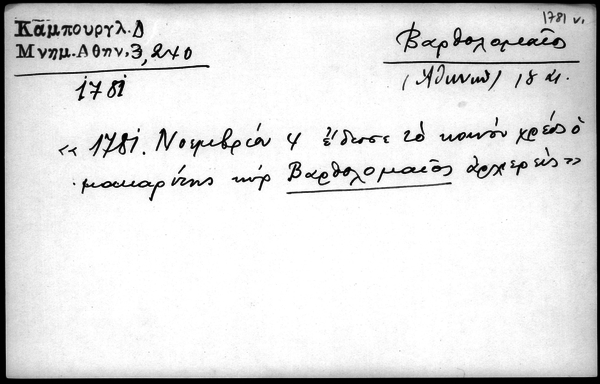 1781 ν.
Καμπουργλ.Δ
Μνημ.Αθην,3, 240
1781
Βαρθολομαῖος
(Ἀθηνῶν) 18 αι.
«1781. Νοεμβρίου 4 ἔδωσε τὸ κοινὸν χρέος ὁ
μακαρίτης κὺρ Βαρθολομαῖος ἀρχιερεὺς»